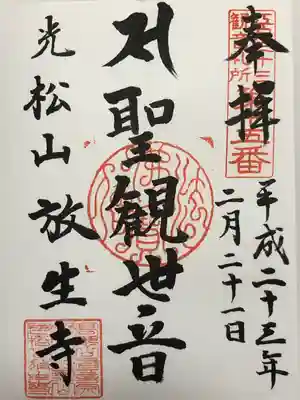 奉拝
平成二十三年
二月二十一日
聖観世音
光松山放生寺